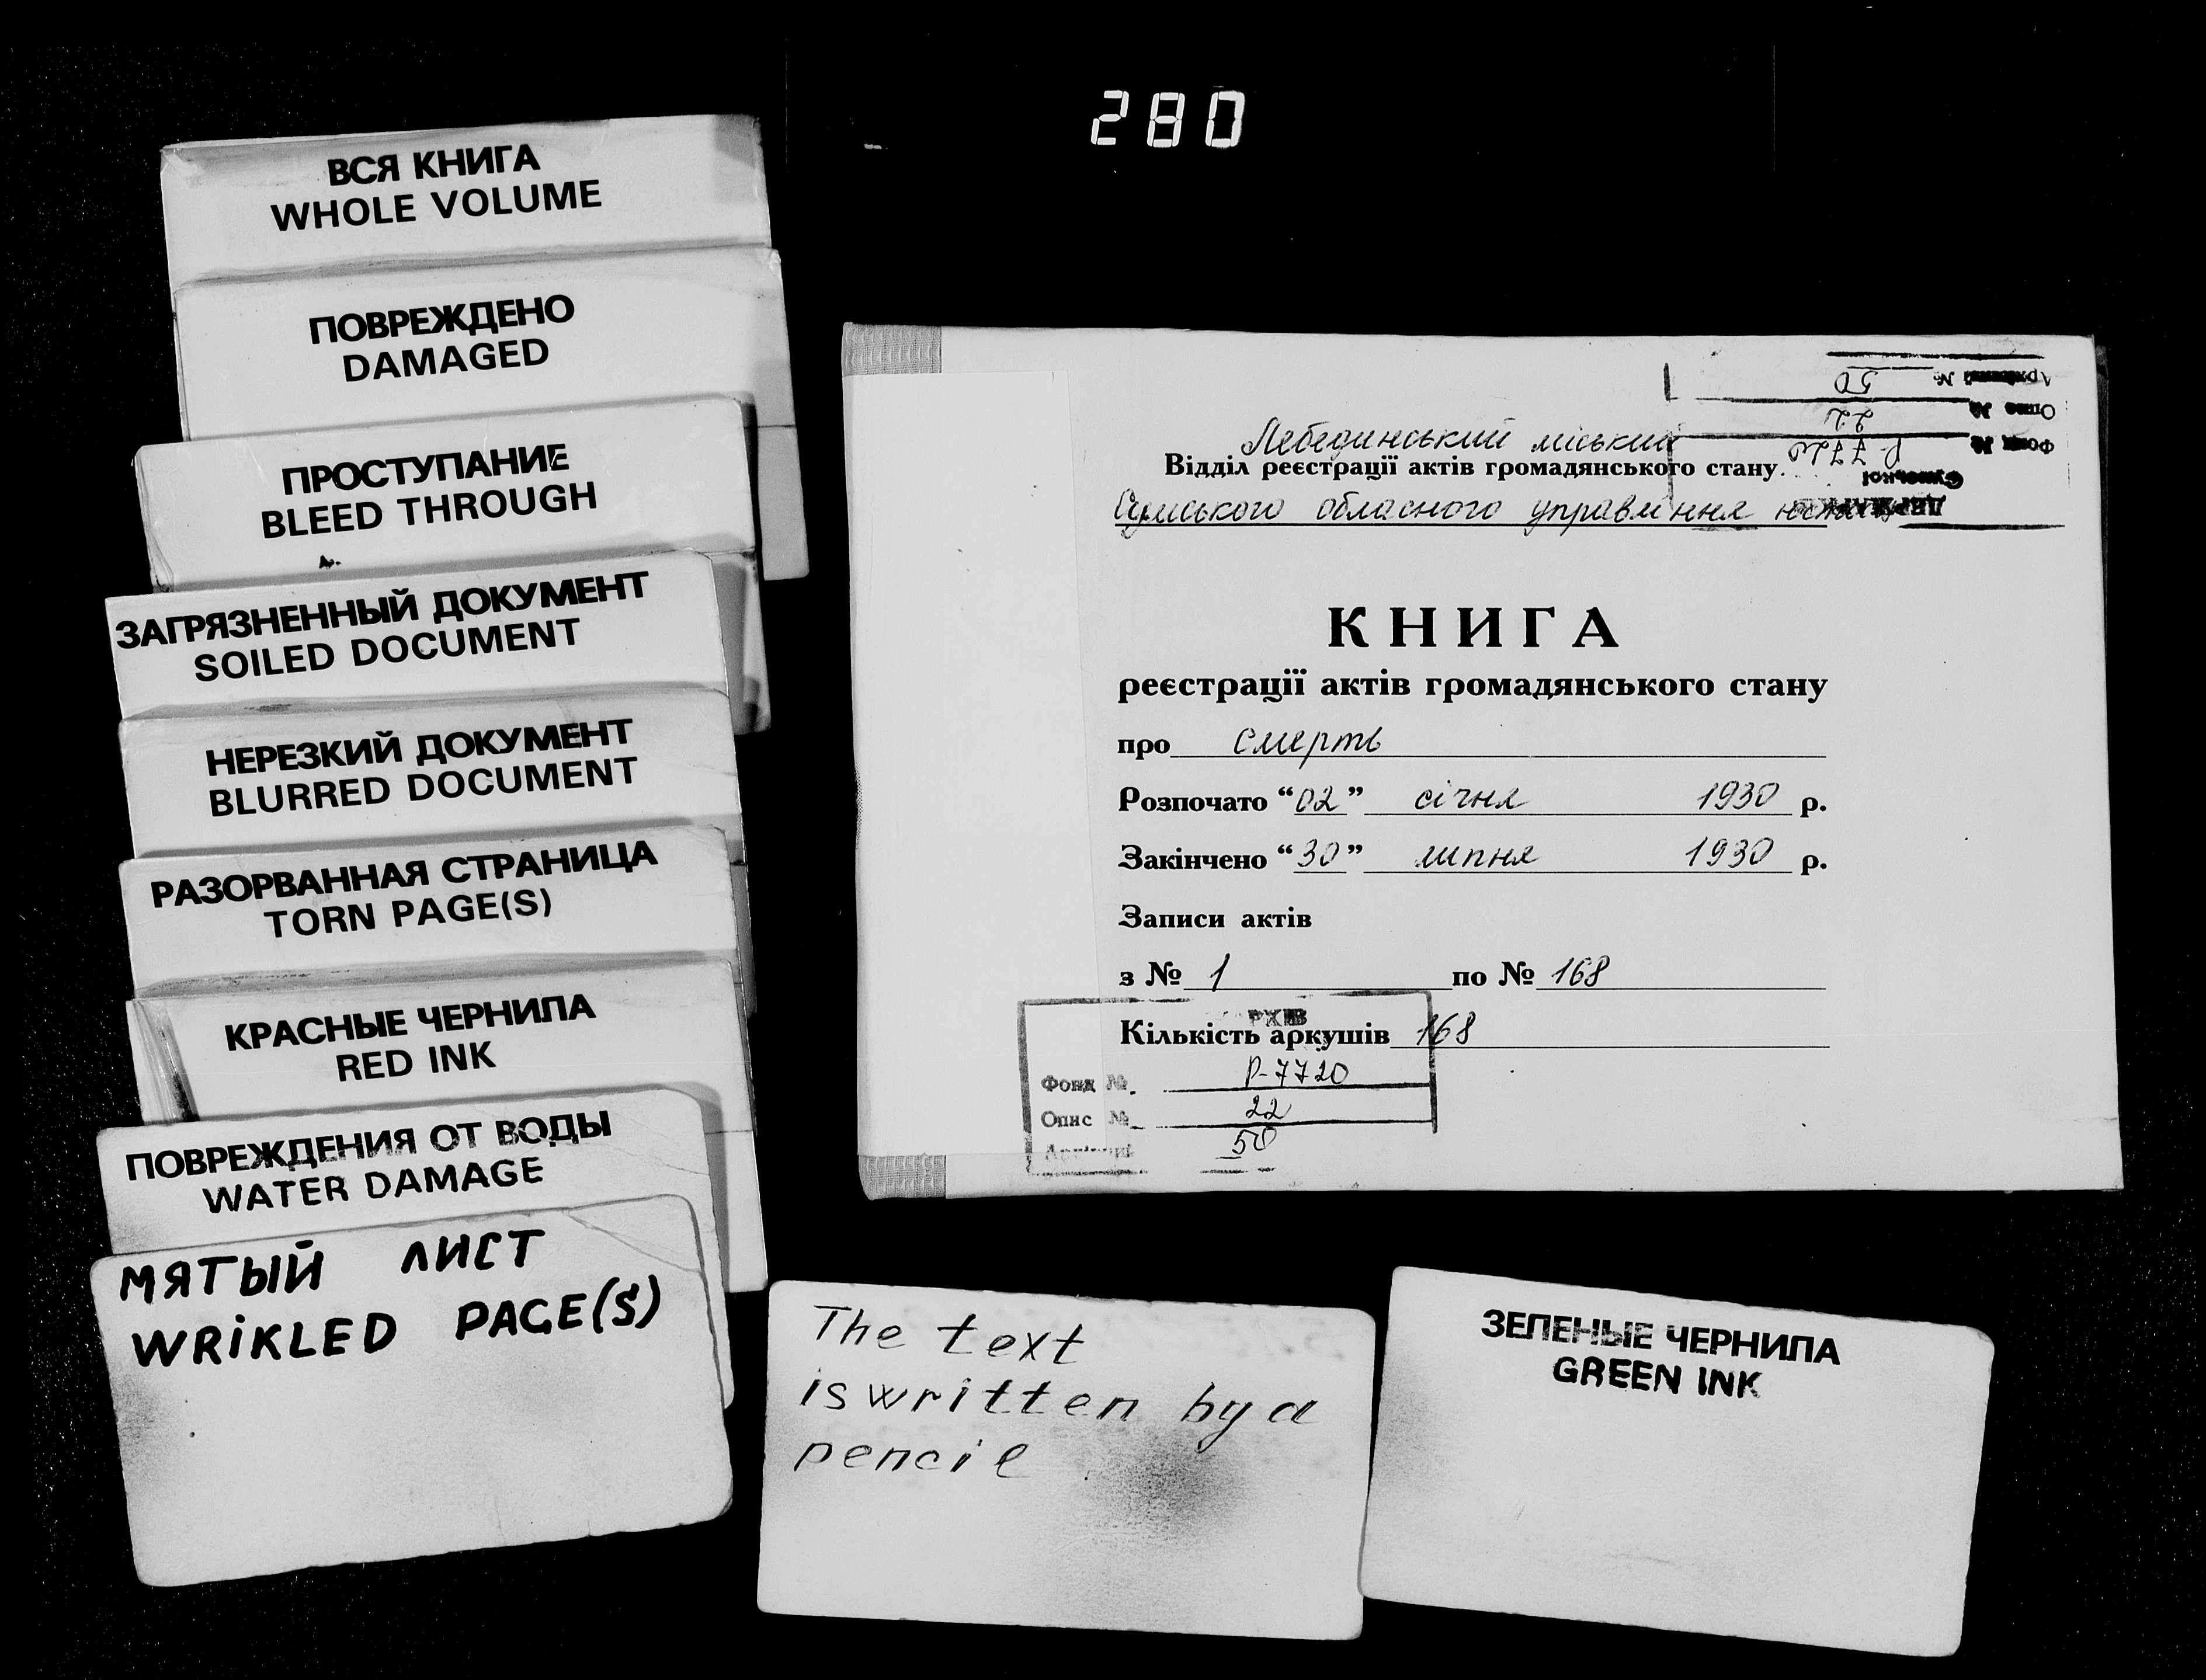 280
ВСЯ КНИГА
WHOLE VOLUME
ПОВРЕЖДЕНО
DAMAGED
ПРОСТУПАНИЕ
BLEED THROUGH
ЗАГРЯЗНЕННЫЙ ДОКУМЕНТ
SOILED DOCUMENT
НЕРЕЗКИЙ ДОКУМЕНТ
BLURRED DOCUMENT
РАЗОРВАННАЯ СТРАНИЦА
TORN PAGE(S)
КРАСНЫЕ ЧЕРНИЛА
RED INK
ПОВРЕЖДЕНИЯ ОТ ВОДЫ
WATER DAMAGE
МЯТЫЙ ЛИСТ
WRIKLED PAGE(S)
Лебединський міський
Відділ реєстрації актів громадянського стану
Сумського обласного управління
КНИГА
реєстрації актів громадянського стану
про смерть
Розпочато “02” січня 1930 р.
Закінчено “30” липня 1930 р.
Записи актів
з № 1 по № 168
Кількість аркушів 168
Фонд № Р-7720
Опис № 22
50
Сумської
Фонд № Р-7720
Опис № 22
№ 50
The text
is written by a
pencil
ЗЕЛЕНЫЕ ЧЕРНИЛА
GREEN INK